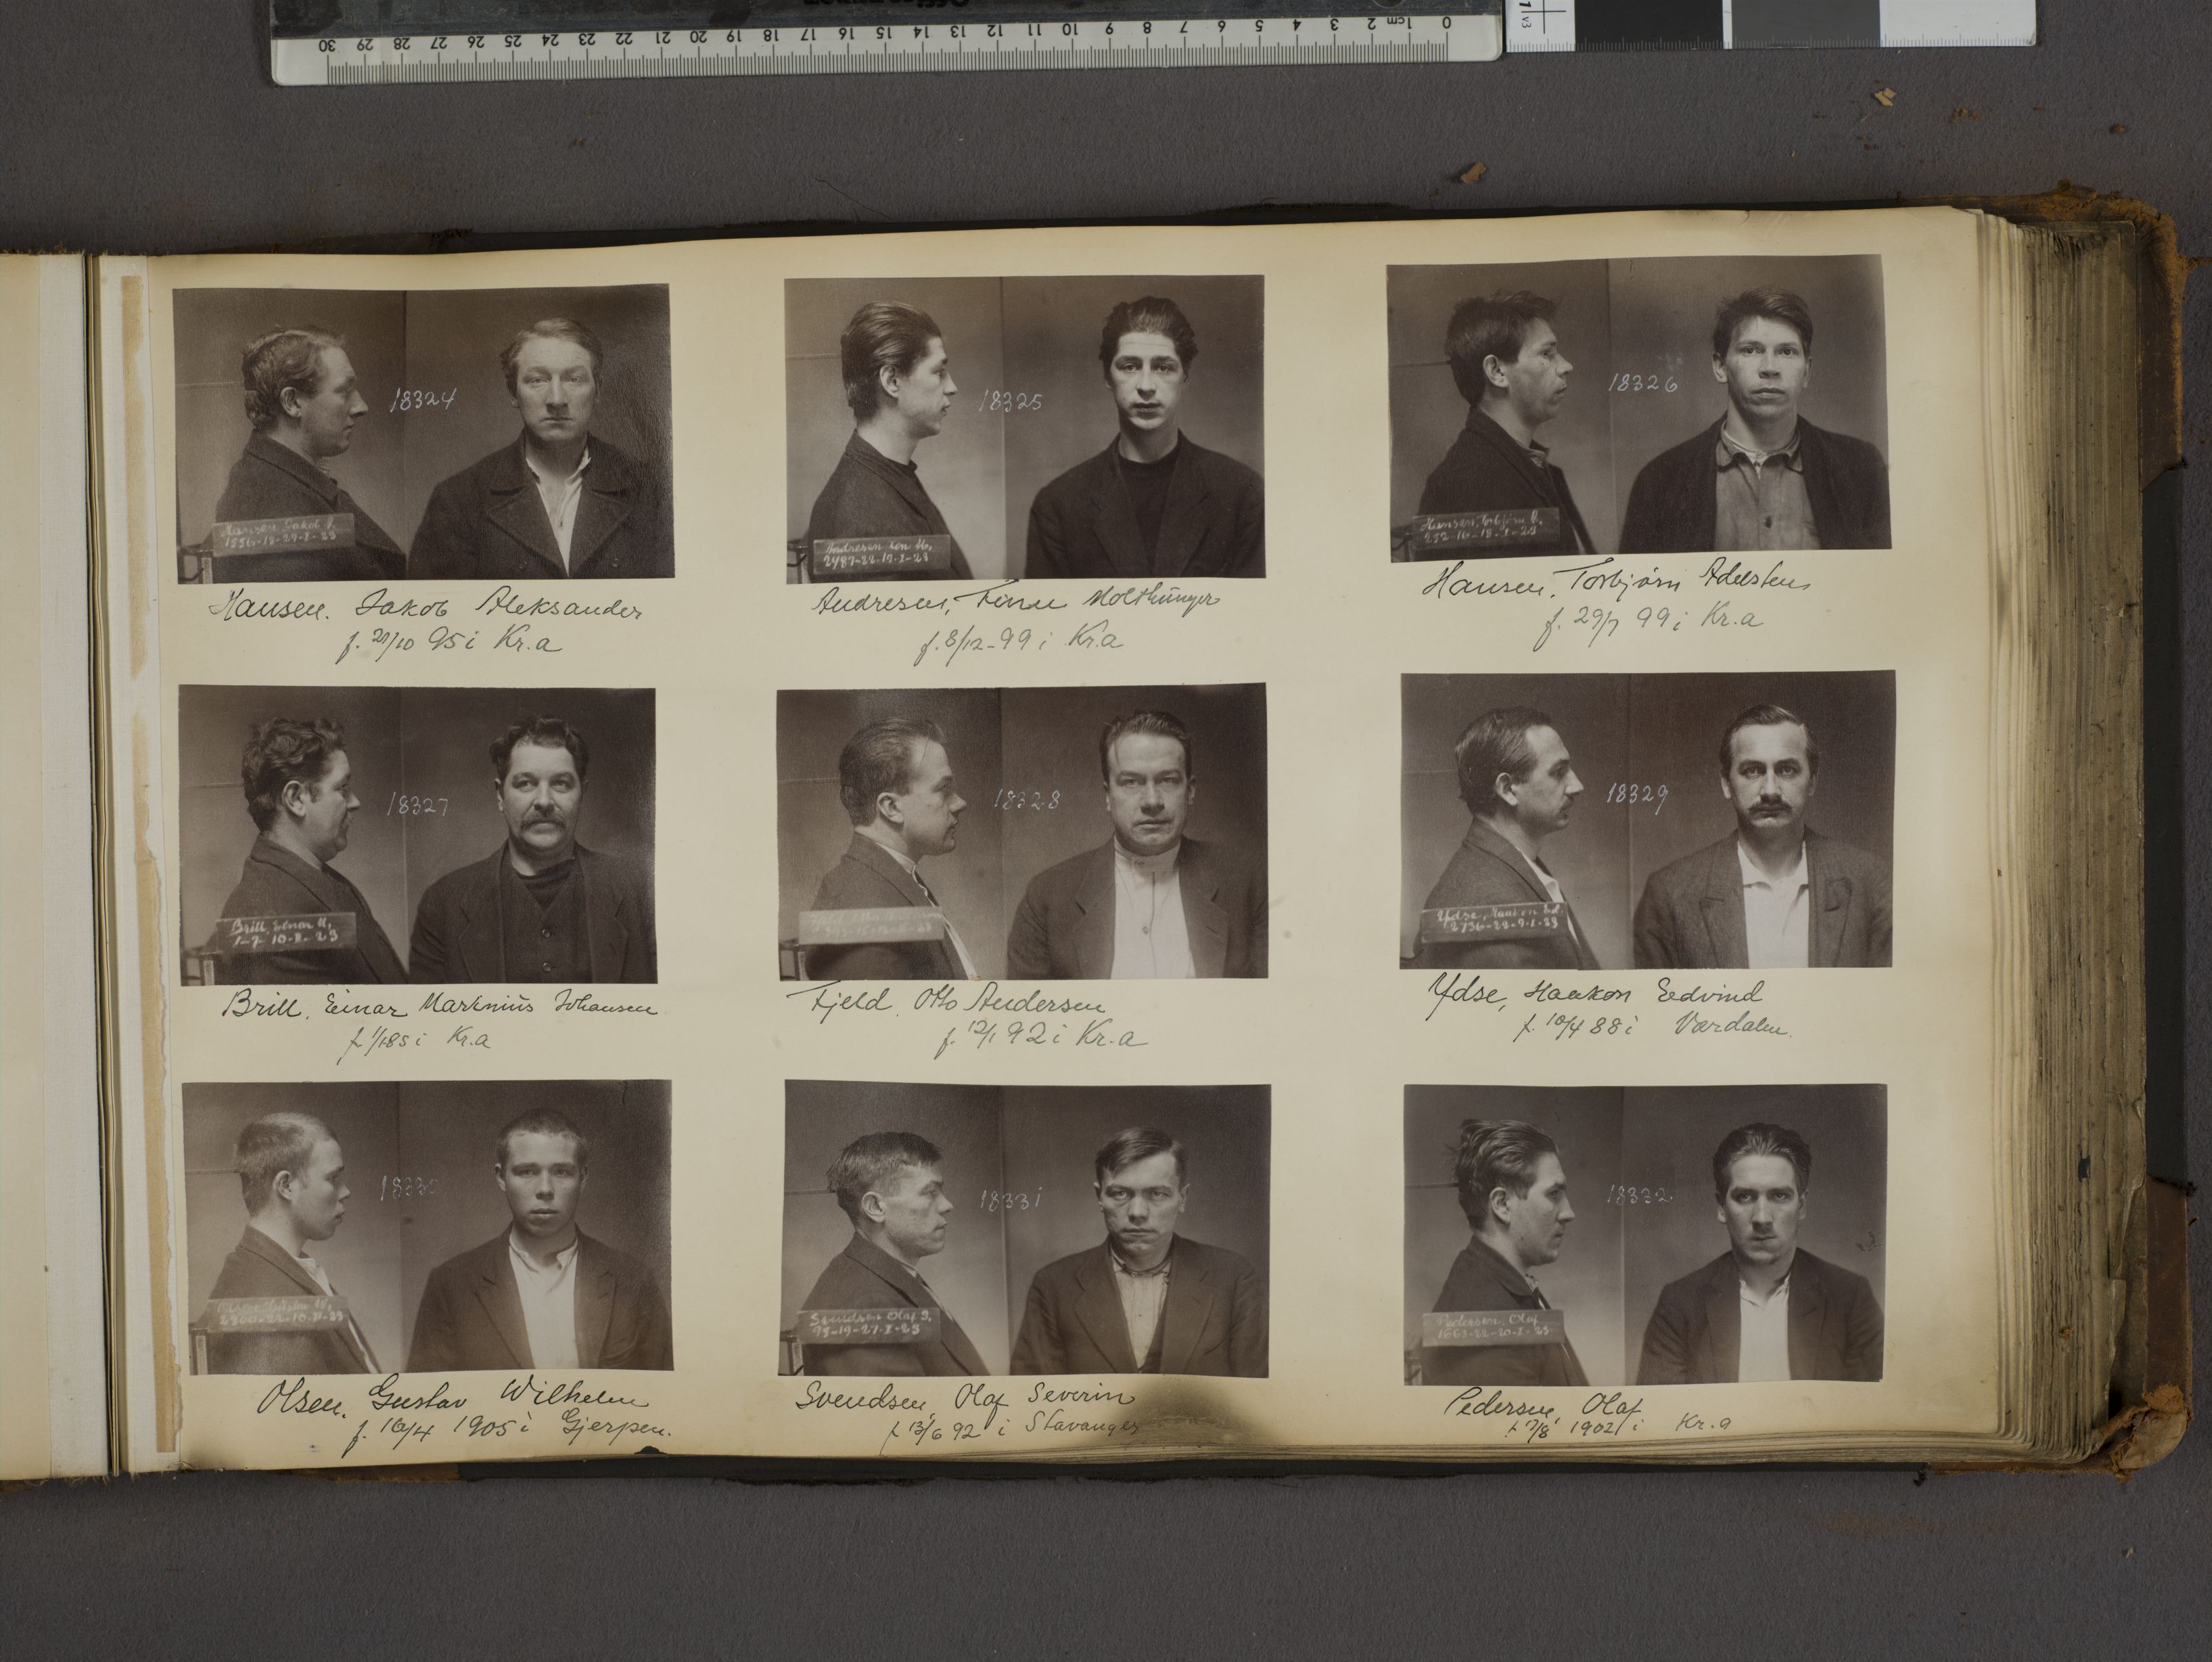 30 29 28 27 26 25 24 23 22 21 20 19 18 17 16 15 14 13 12 11 10 9 8 7 6 5 4 3 2 1cm 0
18324
Hansen, Jakob A.
Hansen. Jakob Aleksander
f. 29/10 95 i Kr.a
18325
2487-22-17-I-23
Andresen, Finn Molthünger
f. 8/12-99 i Kr.a
18326
Hansen, Torbjörn A.
252-16-18-I-23
Hansen, Torbjörn Adelsten
f. 29/7 99 i Kr.a
18327
Brill, Einar M.
1-7-10-II-23
Brill, Einar Martinius Johansen
f. 1/1 85 i Kr.a
18328
Fjeld, Otto Andersen
f. 12/1 92 i Kr.a
18329
Ydse, Haakon Ed.
2736-22-9-I-23
Ydse, Haakon Eedvind
f. 10/4 88 i Værdalen.
18330
Olsen, Gustav W.
2300-22-10-II-23
Olsen, Gustav Wilhelm
f. 16/4 1905 i Gjerpen.
18331
Svendsen Olaf S.
95-19-27-I-23
Svendsen, Olaf Severin
f. 13/6 92 i Stavanger
18332
Pedersen, Olaf
1663-22-20-I-23
Pedersen, Olaf
f. 7/8 1902 i Kr.a